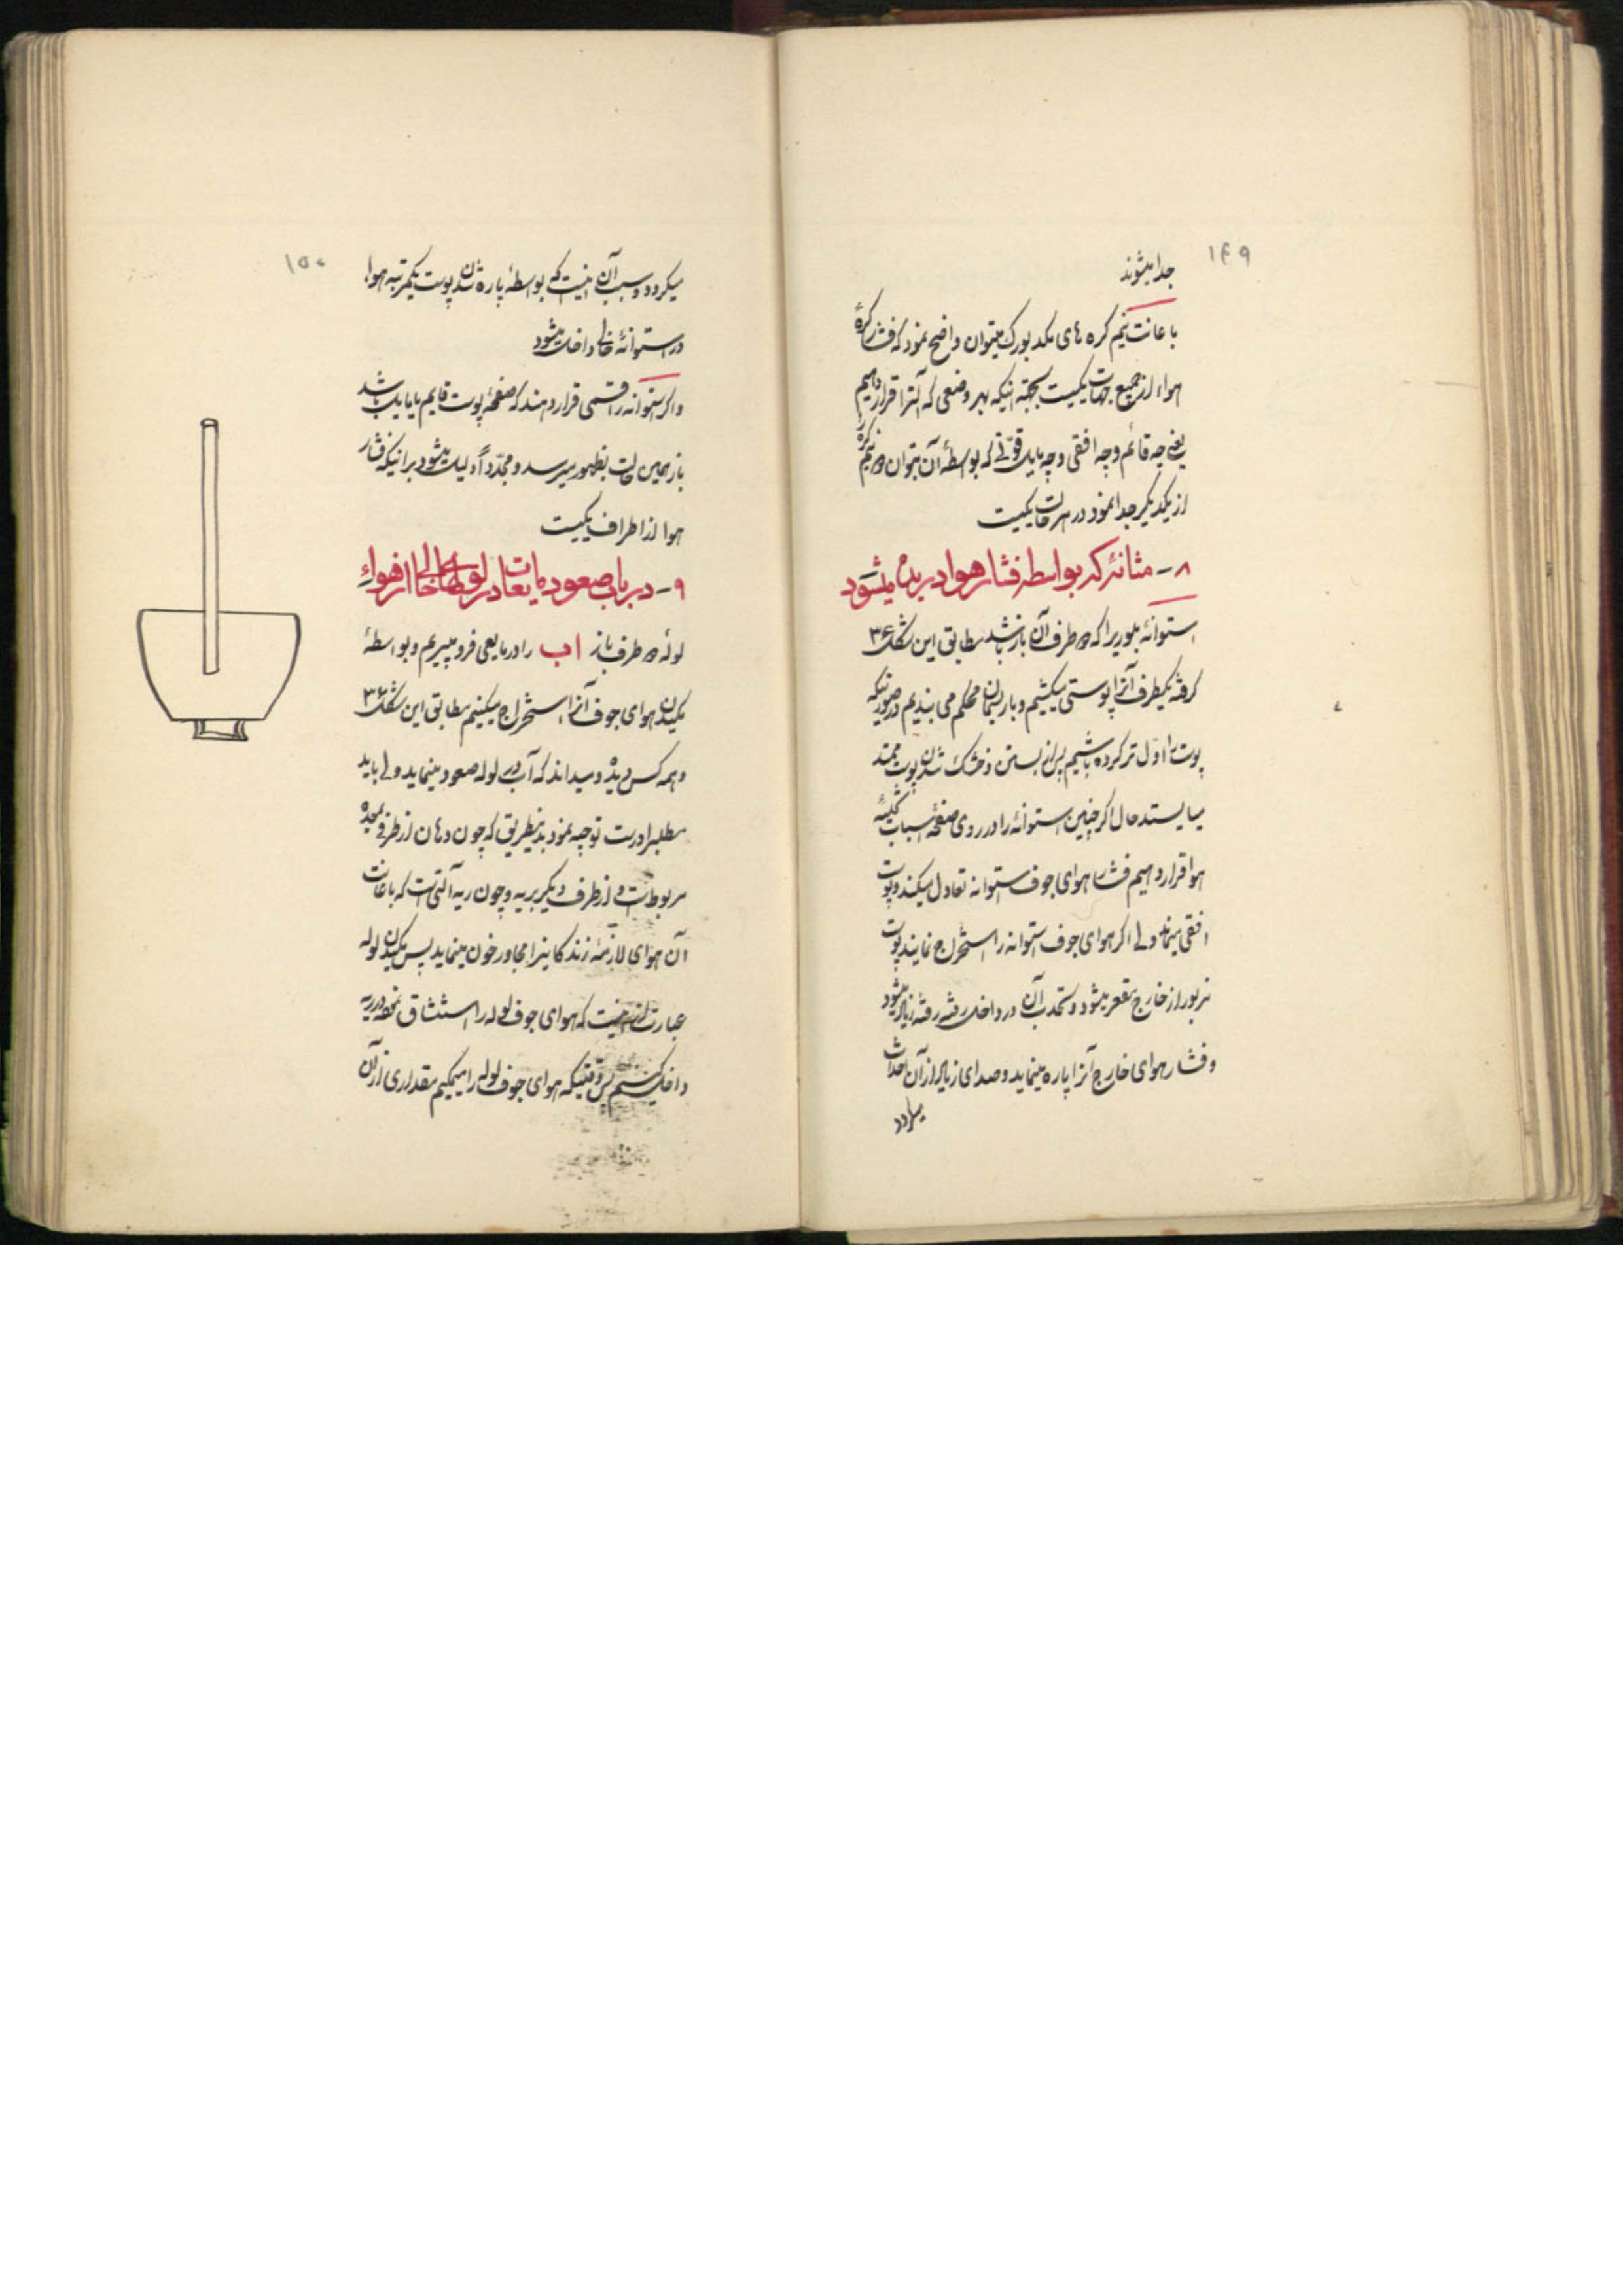 ۱۴۹
جدا میشوند
باعانت نیم کره های مکدبورک میتوان واضح نمود که فشار کرهٔ
هواء از جمیع جهات یکیست بجهة اینکه بهر وضعی که آنرا قرار دهیم
یعنی چه قائم و چه افقی و چه مایل قوّتی که بواسطهٔ آن بتوان دو نیم کره را
از یکدیگر جدا نمود در هر حالت یکیست
۸ - مثانهٔ که بواسطه فشار هوا دریده میشود
استوانهٔ بلوریرا که دو طرف آن باز باشد مطابق این شکل ۳۶
گرفته یکطرف آنرا پوستی میکشیم و با ریسمان محکم می بندیم در صورتیکه
پوست را اول تر کرده باشیم پس از بستن و خشک شدن پوست ممتد
میایستد حال اگر چنین استوانهٔ را در روی صفحهٔ اسباب تخلیهٔ
هوا قرار دهیم فشار هوای جوف استوانه تعادل میکند و پوست
افقی میماند ولی اگر هوای جوف استوانه را استخراج نمایند پوست
مزبور از خارج مقعر میشود و تحدب آن در داخل رفته رفته زیاد میشود
و فشار هوای خارج آنرا پاره مینماید و صدای زیاد از آن احداث
میگردد
۱۵۰
میگردد و سبب آن اینست که بواسطهٔ پاره شدن پوست یکمرتبه هوا
در استوانهٔ خالی داخل میشود
و اگر استوانه را قسمی قرار دهند که صفحهٔ پوست قایم یا مایل باشد
باز همین حالت بظهور میرسد و مجدّداً دلیل میشود بر اینکه فشار
هوا از اطراف یکیست
۹ - در باب صعود مایعات در لوله های خالی از هواء
لولهٔ دو طرف باز ا ب را در مایعی فرو میبریم و بواسطهٔ
مکیدن هوای جوف آنرا استخراج میکنیم مطابق این شکل ۳۶
و همه کس دیده و میداند که آب در لوله صعود مینماید ولی باید
مطلب را درست توجیه نمود بدینطریق که چون دهان از طرفی بمعده
مربوط است و از طرف دیگر بریه و چون ریه آلتی است که باعانت
آن هوای لازمهٔ زندگانی را مجاور خون مینماید پس مکیدن لوله
عبارت از اینست که هوای جوف لوله را استنشاق نموده در ریه
داخل کنیم پس وقتیکه هوای جوف لوله را میمکیم مقداری از آن